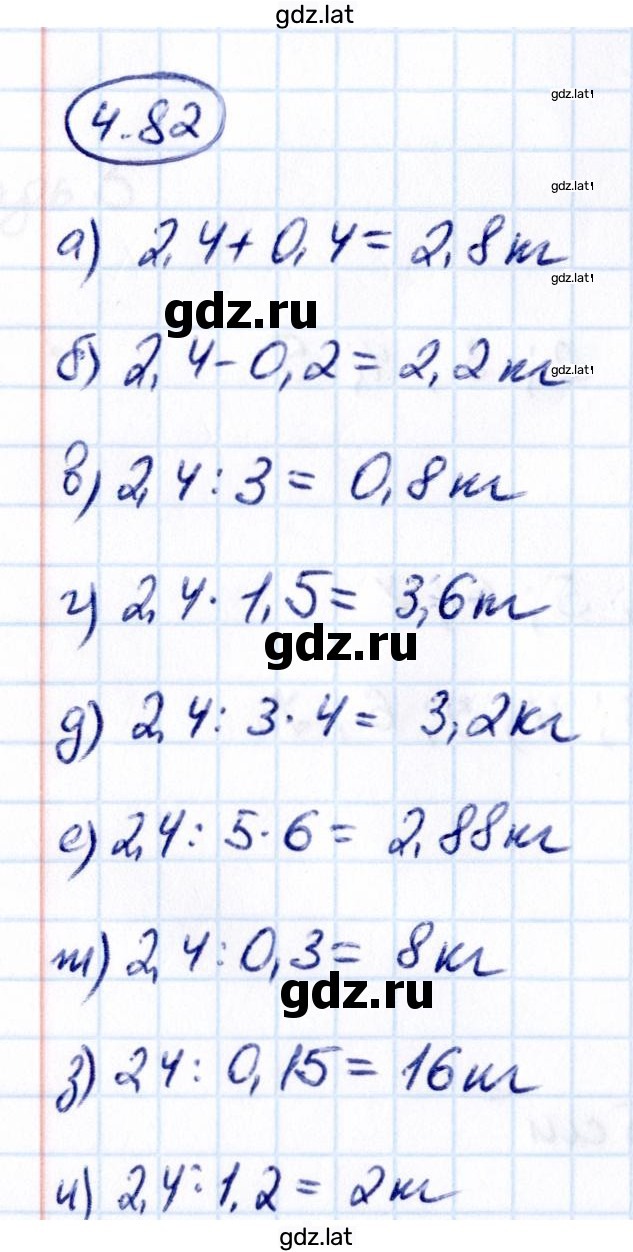 gdz.lat
4.82
gdz.lat
gdz.lat
а) 2,4+0,4=2,8кг
gdz.lat
gdz.ru
б) 2,4-0,2=2,2кг
gdz.lat
в) 2,4:3=0,8кг
г) 2,4·1,5=3,6кг
gdz.ru
д) 2,4:3·4=3,2кг
е) 2,4:5·6=2,88кг
ж) 2,4:0,3=8кг
gdz.ru
з) 2,4:0,15=16кг
и) 2,4:1,2=2кг
gdz.lat